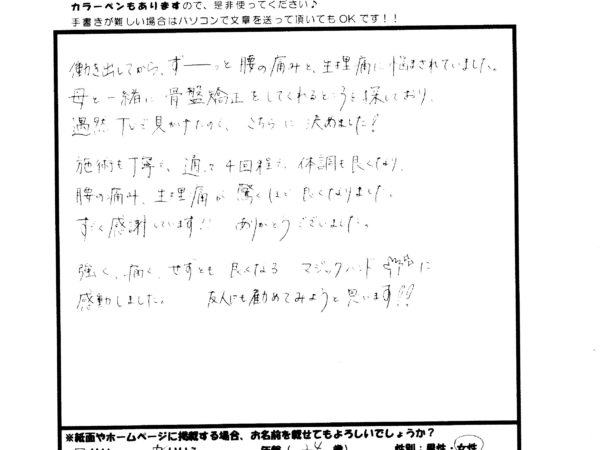 カラーペンもありますので、是非使ってください♪
手書きが難しい場合はパソコンで文章を送って頂いてもOKです！！
働き出してから、ず──っと腰の痛みと、生理痛に悩まされていました。
母と一緒に骨盤矯正をしてくれるところを探しており、
偶然TVで見かけたので、こちらに決めました！
施術も丁寧で、通って4回程で体調も良くなり、
腰の痛み、生理痛が驚くほど良くなりました。
すごく感謝しています!! ありがとうございました。
強く、痛く、せずとも良くなるマジックハンドに
感動しました。 友人にも勧めてみようと思います!!
※紙面やホームページに掲載する場合、お名前を載せてもよろしいでしょうか？
性別：男性・女性